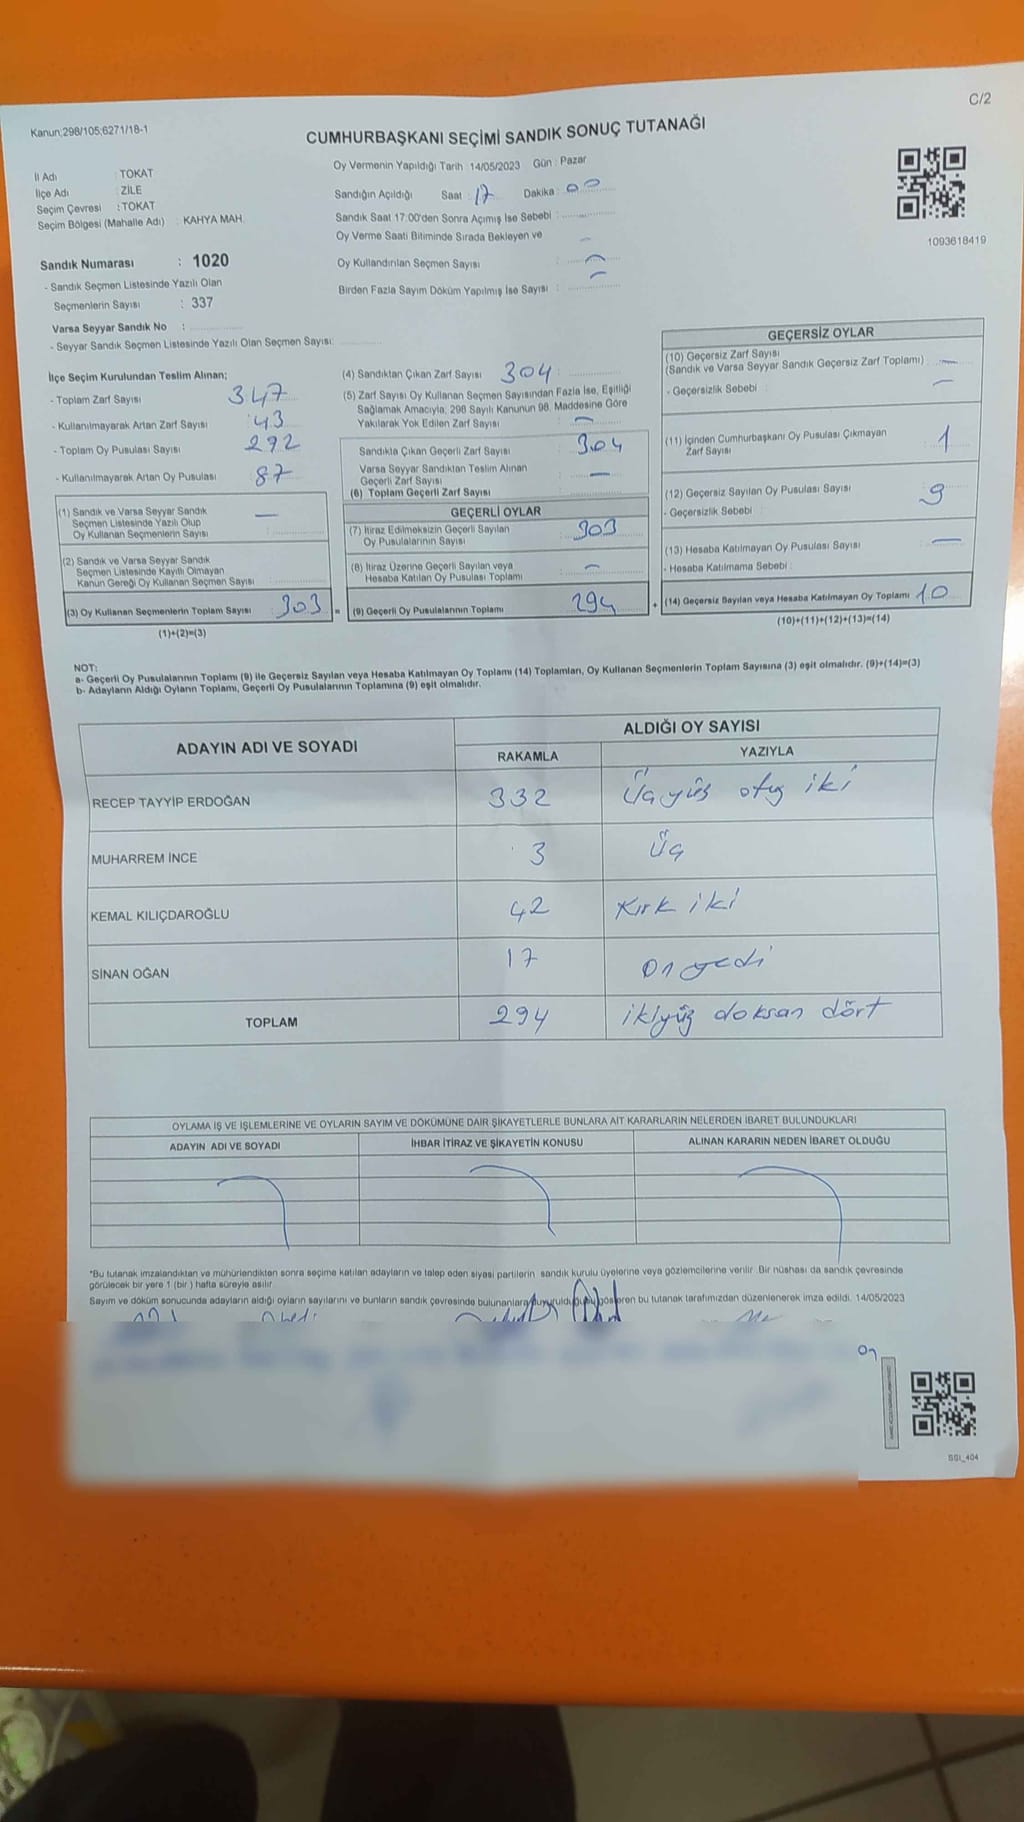 C/2
Kanun;298/105;6271/18-1
CUMHURBAŞKANI SEÇİMİ SANDIK SONUÇ TUTANAĞI
İl Adı : TOKAT
İlçe Adı : ZİLE
Seçim Çevresi : TOKAT
Seçim Bölgesi (Mahalle Adı) : KAHYA MAH.
Oy Vermenin Yapıldığı Tarih : 14/05/2023 Gün : Pazar
Sandığın Açıldığı Saat : 17 Dakika : 00
Sandık Saat 17:00'den Sonra Açımış İse Sebebi :
Oy Verme Saati Bitiminde Sırada Bekleyen ve
Oy Kullandırılan Seçmen Sayısı :
Birden Fazla Sayım Döküm Yapılmış İse Sayısı :
1093618419
Sandık Numarası : 1020
- Sandık Seçmen Listesinde Yazılı Olan
Seçmenlerin Sayısı : 337
Varsa Seyyar Sandık No :
- Seyyar Sandık Seçmen Listesinde Yazılı Olan Seçmen Sayısı:
İlçe Seçim Kurulundan Teslim Alınan;
- Toplam Zarf Sayısı 347
- Kullanılmayarak Artan Zarf Sayısı 43
- Toplam Oy Pusulası Sayısı 292
- Kullanılmayarak Artan Oy Pusulası 87
(1) Sandık ve Varsa Seyyar Sandık
Seçmen Listesinde Yazılı Olup
Oy Kullanan Seçmenlerin Sayısı
(2) Sandık ve Varsa Seyyar Sandık
Seçmen Listesinde Kayıtlı Olmayan
Kanun Gereği Oy Kullanan Seçmen Sayısı
(3) Oy Kullanan Seçmenlerin Toplam Sayısı : 303 =
(1)+(2)=(3)
(4) Sandıktan Çıkan Zarf Sayısı 304
(5) Zarf Sayısı Oy Kullanan Seçmen Sayısından Fazla İse, Eşitliği
Sağlamak Amacıyla, 298 Sayılı Kanunun 98. Maddesine Göre
Yakılarak Yok Edilen Zarf Sayısı
Sandıkta Çıkan Geçerli Zarf Sayısı 304
Varsa Seyyar Sandıktan Teslim Alınan
Geçerli Zarf Sayısı
(6) Toplam Geçerli Zarf Sayısı
GEÇERLİ OYLAR
(7) İtiraz Edilmeksizin Geçerli Sayılan
Oy Pusulalarının Sayısı 303
(8) İtiraz Üzerine Geçerli Sayılan veya
Hesaba Katılan Oy Pusulası Toplamı
(9) Geçerli Oy Pusulalarının Toplamı 294 +
GEÇERSİZ OYLAR
(10) Geçersiz Zarf Sayısı
(Sandık ve Varsa Seyyar Sandık Geçersiz Zarf Toplamı)
- Geçersizlik Sebebi :
(11) İçinden Cumhurbaşkanı Oy Pusulası Çıkmayan
Zarf Sayısı 1
(12) Geçersiz Sayılan Oy Pusulası Sayısı 9
- Geçersizlik Sebebi :
(13) Hesaba Katılmayan Oy Pusulası Sayısı
- Hesaba Katılmama Sebebi :
(14) Geçersiz Sayılan veya Hesaba Katılmayan Oy Toplamı 10
(10)+(11)+(12)+(13)=(14)
NOT:
a- Geçerli Oy Pusulalarının Toplamı (9) ile Geçersiz Sayılan veya Hesaba Katılmayan Oy Toplamı (14) Toplamları, Oy Kullanan Seçmenlerin Toplam Sayısına (3) eşit olmalıdır. (9)+(14)=(3)
b- Adayların Aldığı Oyların Toplamı, Geçerli Oy Pusulalarının Toplamına (9) eşit olmalıdır.
ADAYIN ADI VE SOYADI
ALDIĞI OY SAYISI
RAKAMLA YAZIYLA
RECEP TAYYİP ERDOĞAN 332 Üçyüs otuz iki
MUHARREM İNCE 3 Üç
KEMAL KILIÇDAROĞLU 42 Kırk iki
SİNAN OĞAN 17 Onyedi
TOPLAM 294 ikiyüz doksan dört
OYLAMA İŞ VE İŞLEMLERİNE VE OYLARIN SAYIM VE DÖKÜMÜNE DAİR ŞİKAYETLERLE BUNLARA AİT KARARLARIN NELERDEN İBARET BULUNDUKLARI
ADAYIN ADI VE SOYADI İHBAR İTİRAZ VE ŞİKAYETİN KONUSU ALINAN KARARIN NEDEN İBARET OLDUĞU
*Bu tutanak imzalandıktan ve mühürlendikten sonra seçime katılan adayların ve talep eden siyasi partilerin sandık kurulu üyelerine veya gözlemcilerine verilir. Bir nüshası da sandık çevresinde
görülecek bir yere 1 (bir) hafta süreyle asılır.
Sayım ve döküm sonucunda adayların aldığı oyların sayılarını ve bunların sandık çevresinde bulunanlara duyurulduğunu gösteren bu tutanak tarafımızdan düzenlenerek imza edildi. 14/05/2023